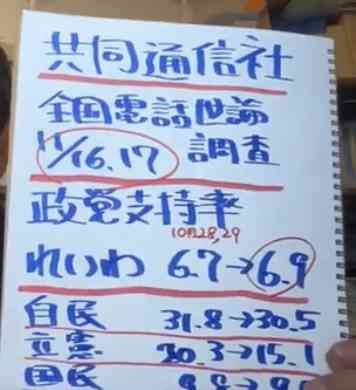 共同通信社
全国電話世論
11/16.17 調査
政党支持率
10月28,29
れいわ 6.7→6.9
自民 31.8→30.5
立憲 20.3→15.1
国民